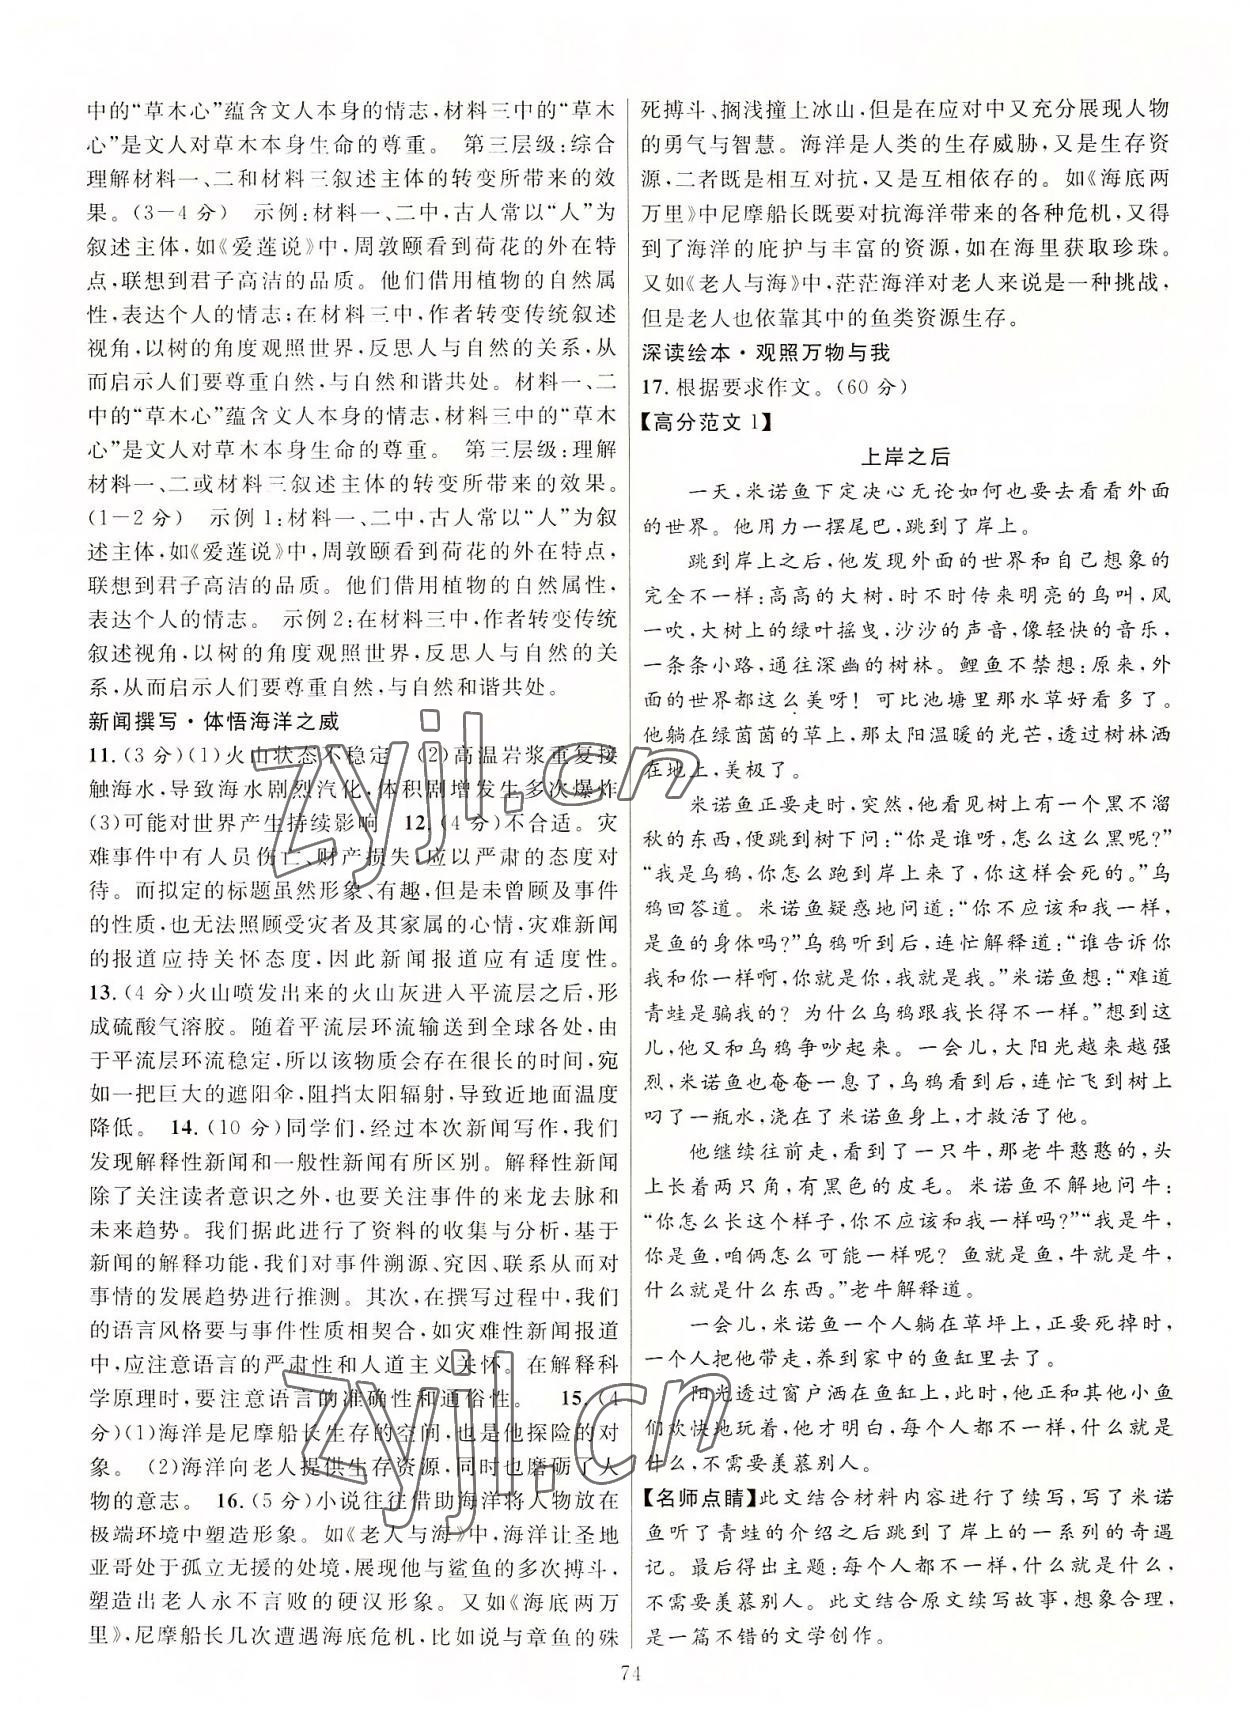 中的“草木心”蕴含文人本身的情志,材料三中的“草木
心”是文人对草木本身生命的尊重。 第三层级:综合
理解材料一、二和材料三叙述主体的转变所带来的效
果。(3-4 分) 示例:材料一、二中,古人常以“人”为
叙述主体,如《爱莲说》中,周敦颐看到荷花的外在特
点,联想到君子高洁的品质。他们借用植物的自然属
性,表达个人的情志;在材料三中,作者转变传统叙述
视角,以树的角度观照世界,反思人与自然的关系,从
而启示人们要尊重自然,与自然和谐共处。材料一、二
中的“草木心”蕴含文人本身的情志,材料三中的“草木
心”是文人对草木本身生命的尊重。 第三层级:理解
材料一、二或材料三叙述主体的转变所带来的效果。
(1-2 分) 示例 1:材料一、二中,古人常以“人”为叙
述主体,如《爱莲说》中,周敦颐看到荷花的外在特点,
联想到君子高洁的品质。他们借用植物的自然属性,
表达个人的情志。 示例 2:在材料三中,作者转变传统
叙述视角,以树的角度观照世界,反思人与自然的关
系,从而启示人们要尊重自然,与自然和谐共处。
新闻撰写·体悟海洋之威
11.(3 分)(1)火山状态不稳定 (2)高温岩浆重复接
触海水,导致海水剧烈汽化,体积剧增发生多次爆炸
(3)可能对世界产生持续影响 12.(4 分)不合适。灾
难事件中有人员伤亡、财产损失,应以严肃的态度对
待。而拟定的标题虽然形象、有趣,但是未曾顾及事件
的性质,也无法照顾受灾者及其家属的心情,灾难新闻
的报道应持关怀态度,因此新闻报道应有适度性。
13.(4 分)火山喷发出来的火山灰进入平流层之后,形
成硫酸气溶胶。随着平流层环流输送到全球各处,由
于平流层环流稳定,所以该物质会存在很长的时间,宛
如一把巨大的遮阳伞,阻挡太阳辐射,导致近地面温度
降低。 14.(10 分)同学们,经过本次新闻写作,我们
发现解释性新闻和一般性新闻有所区别。解释性新闻
除了关注读者意识之外,也要关注事件的来龙去脉和
未来趋势。我们据此进行了资料的收集与分析,基于
新闻的解释功能,我们对事件溯源、究因、联系从而对
事情的发展趋势进行推测。其次,在撰写过程中,我们
的语言风格要与事件性质相契合,如灾难性新闻报道
中,应注意语言的严肃性和人道主义关怀。在解释科
学原理时,要注意语言的准确性和通俗性。 15.(4
分)(1)海洋是尼摩船长生存的空间,也是他探险的对
象。 (2)海洋向老人提供生存资源,同时也磨砺了人
物的意志。 16.(5 分)小说往往借助海洋将人物放在
极端环境中塑造形象。如《老人与海》中,海洋让圣地
亚哥处于孤立无援的处境,展现他与鲨鱼的多次搏斗,
塑造出老人永不言败的硬汉形象。又如《海底两万
里》,尼摩船长几次遭遇海底危机,比如说与章鱼的殊
死搏斗、搁浅撞上冰山,但是在应对中又充分展现人物
的勇气与智慧。海洋是人类的生存威胁,又是生存资
源,二者既是相互对抗,又是互相依存的。如《海底两
万里》中尼摩船长既要对抗海洋带来的各种危机,又得
到了海洋的庇护与丰富的资源,如在海里获取珍珠。
又如《老人与海》中,茫茫海洋对老人来说是一种挑战,
但是老人也依靠其中的鱼类资源生存。
深读绘本·观照万物与我
17.根据要求作文。(60 分)
【高分范文 1】
上岸之后
一天,米诺鱼下定决心无论如何也要去看看外面
的世界。他用力一摆尾巴,跳到了岸上。
跳到岸上之后,他发现外面的世界和自己想象的
完全不一样:高高的大树,时不时传来明亮的鸟叫,风
一吹,大树上的绿叶摇曳,沙沙的声音,像轻快的音乐,
一条条小路,通往深幽的树林。鲤鱼不禁想:原来,外
面的世界都这么美呀! 可比池塘里那水草好看多了。
他躺在绿茵茵的草上,那太阳温暖的光芒,透过树林洒
在地上,美极了。
米诺鱼正要走时,突然,他看见树上有一个黑不溜
秋的东西,便跳到树下问:“你是谁呀,怎么这么黑呢?”
“我是乌鸦,你怎么跑到岸上来了,你这样会死的。”乌
鸦回答道。米诺鱼疑惑地问道:“你不应该和我一样,
是鱼的身体吗?”乌鸦听到后,连忙解释道:“谁告诉你
我和你一样啊,你就是你,我就是我。”米诺鱼想:“难道
青蛙是骗我的? 为什么乌鸦跟我长得不一样。”想到这
儿,他又和乌鸦争吵起来。一会儿,太阳光越来越强
烈,米诺鱼也奄奄一息了,乌鸦看到后,连忙飞到树上
叼了一瓶水,浇在了米诺鱼身上,才救活了他。
他继续往前走,看到了一只牛,那老牛憨憨的,头
上长着两只角,有黑色的皮毛。米诺鱼不解地问牛:
“你怎么长这个样子,你不应该和我一样吗?”“我是牛,
你是鱼,咱俩怎么可能一样呢? 鱼就是鱼,牛就是牛,
什么就是什么东西。”老牛解释道。
一会儿,米诺鱼一个人躺在草坪上,正要死掉时,
一个人把他带走,养到家中的鱼缸里去了。
阳光透过窗户洒在鱼缸上,此时,他正和其他小鱼
们欢快地玩着,他才明白,每个人都不一样,什么就是
什么,不需要羡慕别人。
【名师点睛】此文结合材料内容进行了续写,写了米诺
鱼听了青蛙的介绍之后跳到了岸上的一系列的奇遇
记。最后得出主题:每个人都不一样,什么就是什么,
不需要羡慕别人。此文结合原文续写故事,想象合理,
是一篇不错的文学创作。
74
zyjl.cn
zyjl.cn